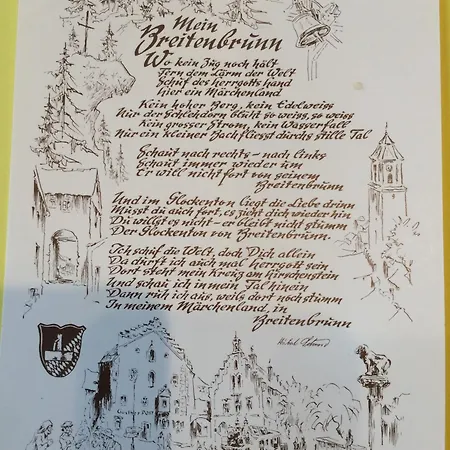 Mein
Breitenbrunn
Wo kein Zug noch hält
Fern dem Lärm der Welt
Schuf des Herrgotts Hand
hier ein Märchenland
Kein hoher Berg, kein Edelweiss
Nur der Schlehdorn blüht so weiss, so weiss
Kein grosser Strom, kein Wasserfall
Nur ein kleiner Bach fliesst durchs stille Tal
Schaut nach rechts - nach links
Schaut immer wieder um
Er will nicht fort von seinem
Breitenbrunn
Und im Glockenton liegt die Liebe drinn
Musst du auch fort, es zieht dich wieder hin
Du willst es nicht - er bleibt nicht stumm
Der Glockenton von Breitenbrunn.
Ich schuf die Welt, doch Dich allein
Da dürft ich auch mal Herrgott sein
Dort steht mein Kreuz am Hirschenstein
Und schau ich in mein Tal hinein
Dann ruh ich aus, weils dort noch stumm
In meinem Märchenland, in
Breitenbrunn
Gasthof Post